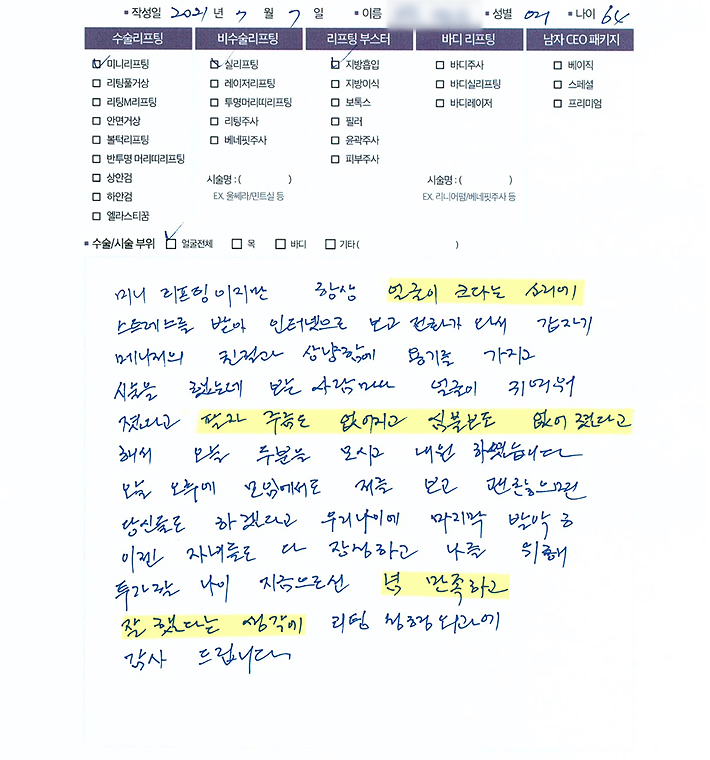 작성일 2021 년 7 월 7 일 이름 성별 여 나이 64
수술리프팅 비수술리프팅 리프팅 부스터 바디 리프팅 남자 CEO 패키지
미니리프팅 실리프팅 지방흡입 바디주사 베이직
리팅풀거상 레이저리프팅 지방이식 바디실리프팅 스페셜
리팅M리프팅 투명머리띠리프팅 보톡스 바디레이저 프리미엄
안면거상 리팅주사 필러
볼턱리프팅 베네핏주사 윤곽주사
반투명 머리띠리프팅 피부주사
상안검 시술명 : ( ) 시술명 : ( )
하안검 EX. 울쎄라/민트실 등 EX. 리니어펌/베네핏주사 등
엘라스티꿈
수술/시술 부위 얼굴전체 목 바디 기타 ( )
미니 리프팅이지만 항상 얼굴이 크다는 소리에
스트레스를 받아 인터넷으로 보고 전화가 와서 갑자기
메니저의 친절과 상냥함에 용기를 가지고
시술을 했는데 보는 사람마다 얼굴이 귀여워
졌다고 팔자 주름도 없어지고 심불보도 없어 졌다고
해서 오늘 두분을 모시고 내원 하였습니다
오늘 오후에 모임에서도 저를 보고 괜찮으면
당신들도 하겠다고 우리나이에 마지막 발악
이젠 자녀들도 다 장성하고 나를 위해
투자할 나이 지금으로선 넘 만족하고
잘 했다는 생각에 리팅 성형외과에
감사 드립니다